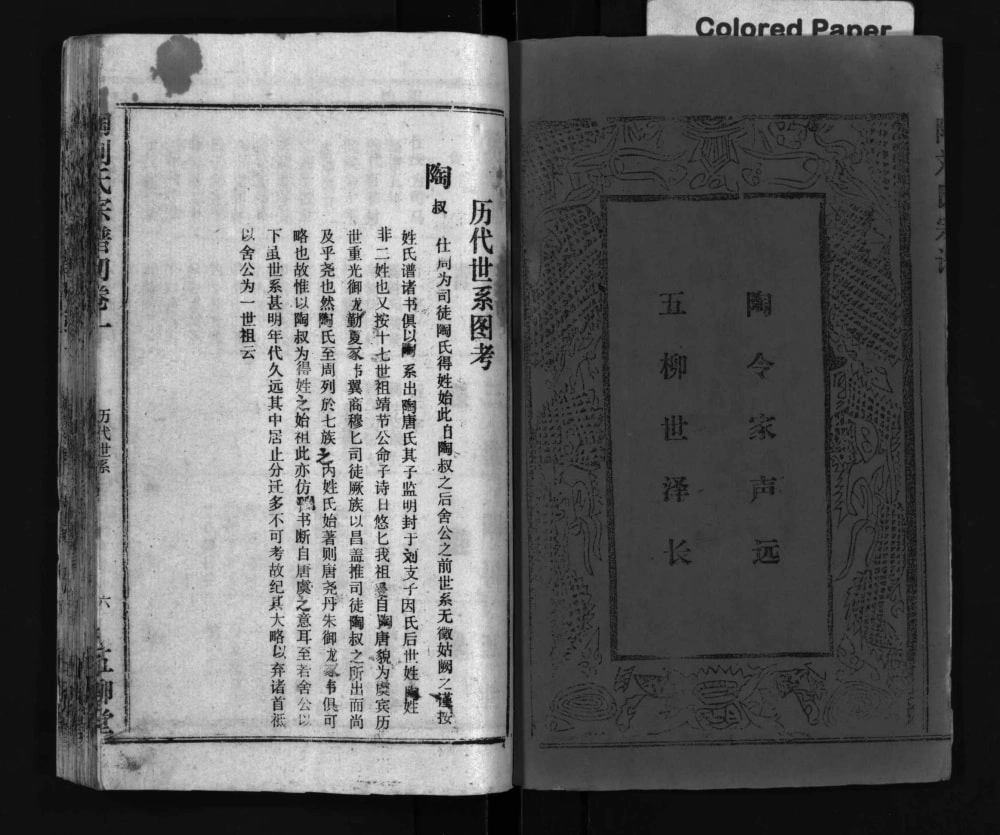 Colored Paper
陶令家声远
五柳世泽长
历代世系图考
陶叔 仕周为司徒陶氏得姓始此自陶叔之后舍公之前世系无徵姑阙之谨按
姓氏谱诸书俱以陶系出陶唐氏其子监明封于刘支子因氏后世姓陶姓
非二姓也又按十七世祖靖节公命子诗曰悠匕我祖爰自陶唐貌为虞宾历
世重光御龙勤夏豕韦翼商穆匕司徒厥族以昌盖推司徒陶叔之所出而尚
及乎尧也然陶氏至周列於七族之内姓氏始著则唐尧丹朱御龙豕韦俱可
略也故惟以陶叔为得姓之始祖此亦仿书断自唐虞之意耳至若舍公以
下虽世系甚明年代久远其中居止分迁多不可考故纪其大略以弃诸首祗
以舍公为一世祖云
陶刘氏宗谱初卷一
历代世系
六
五柳堂